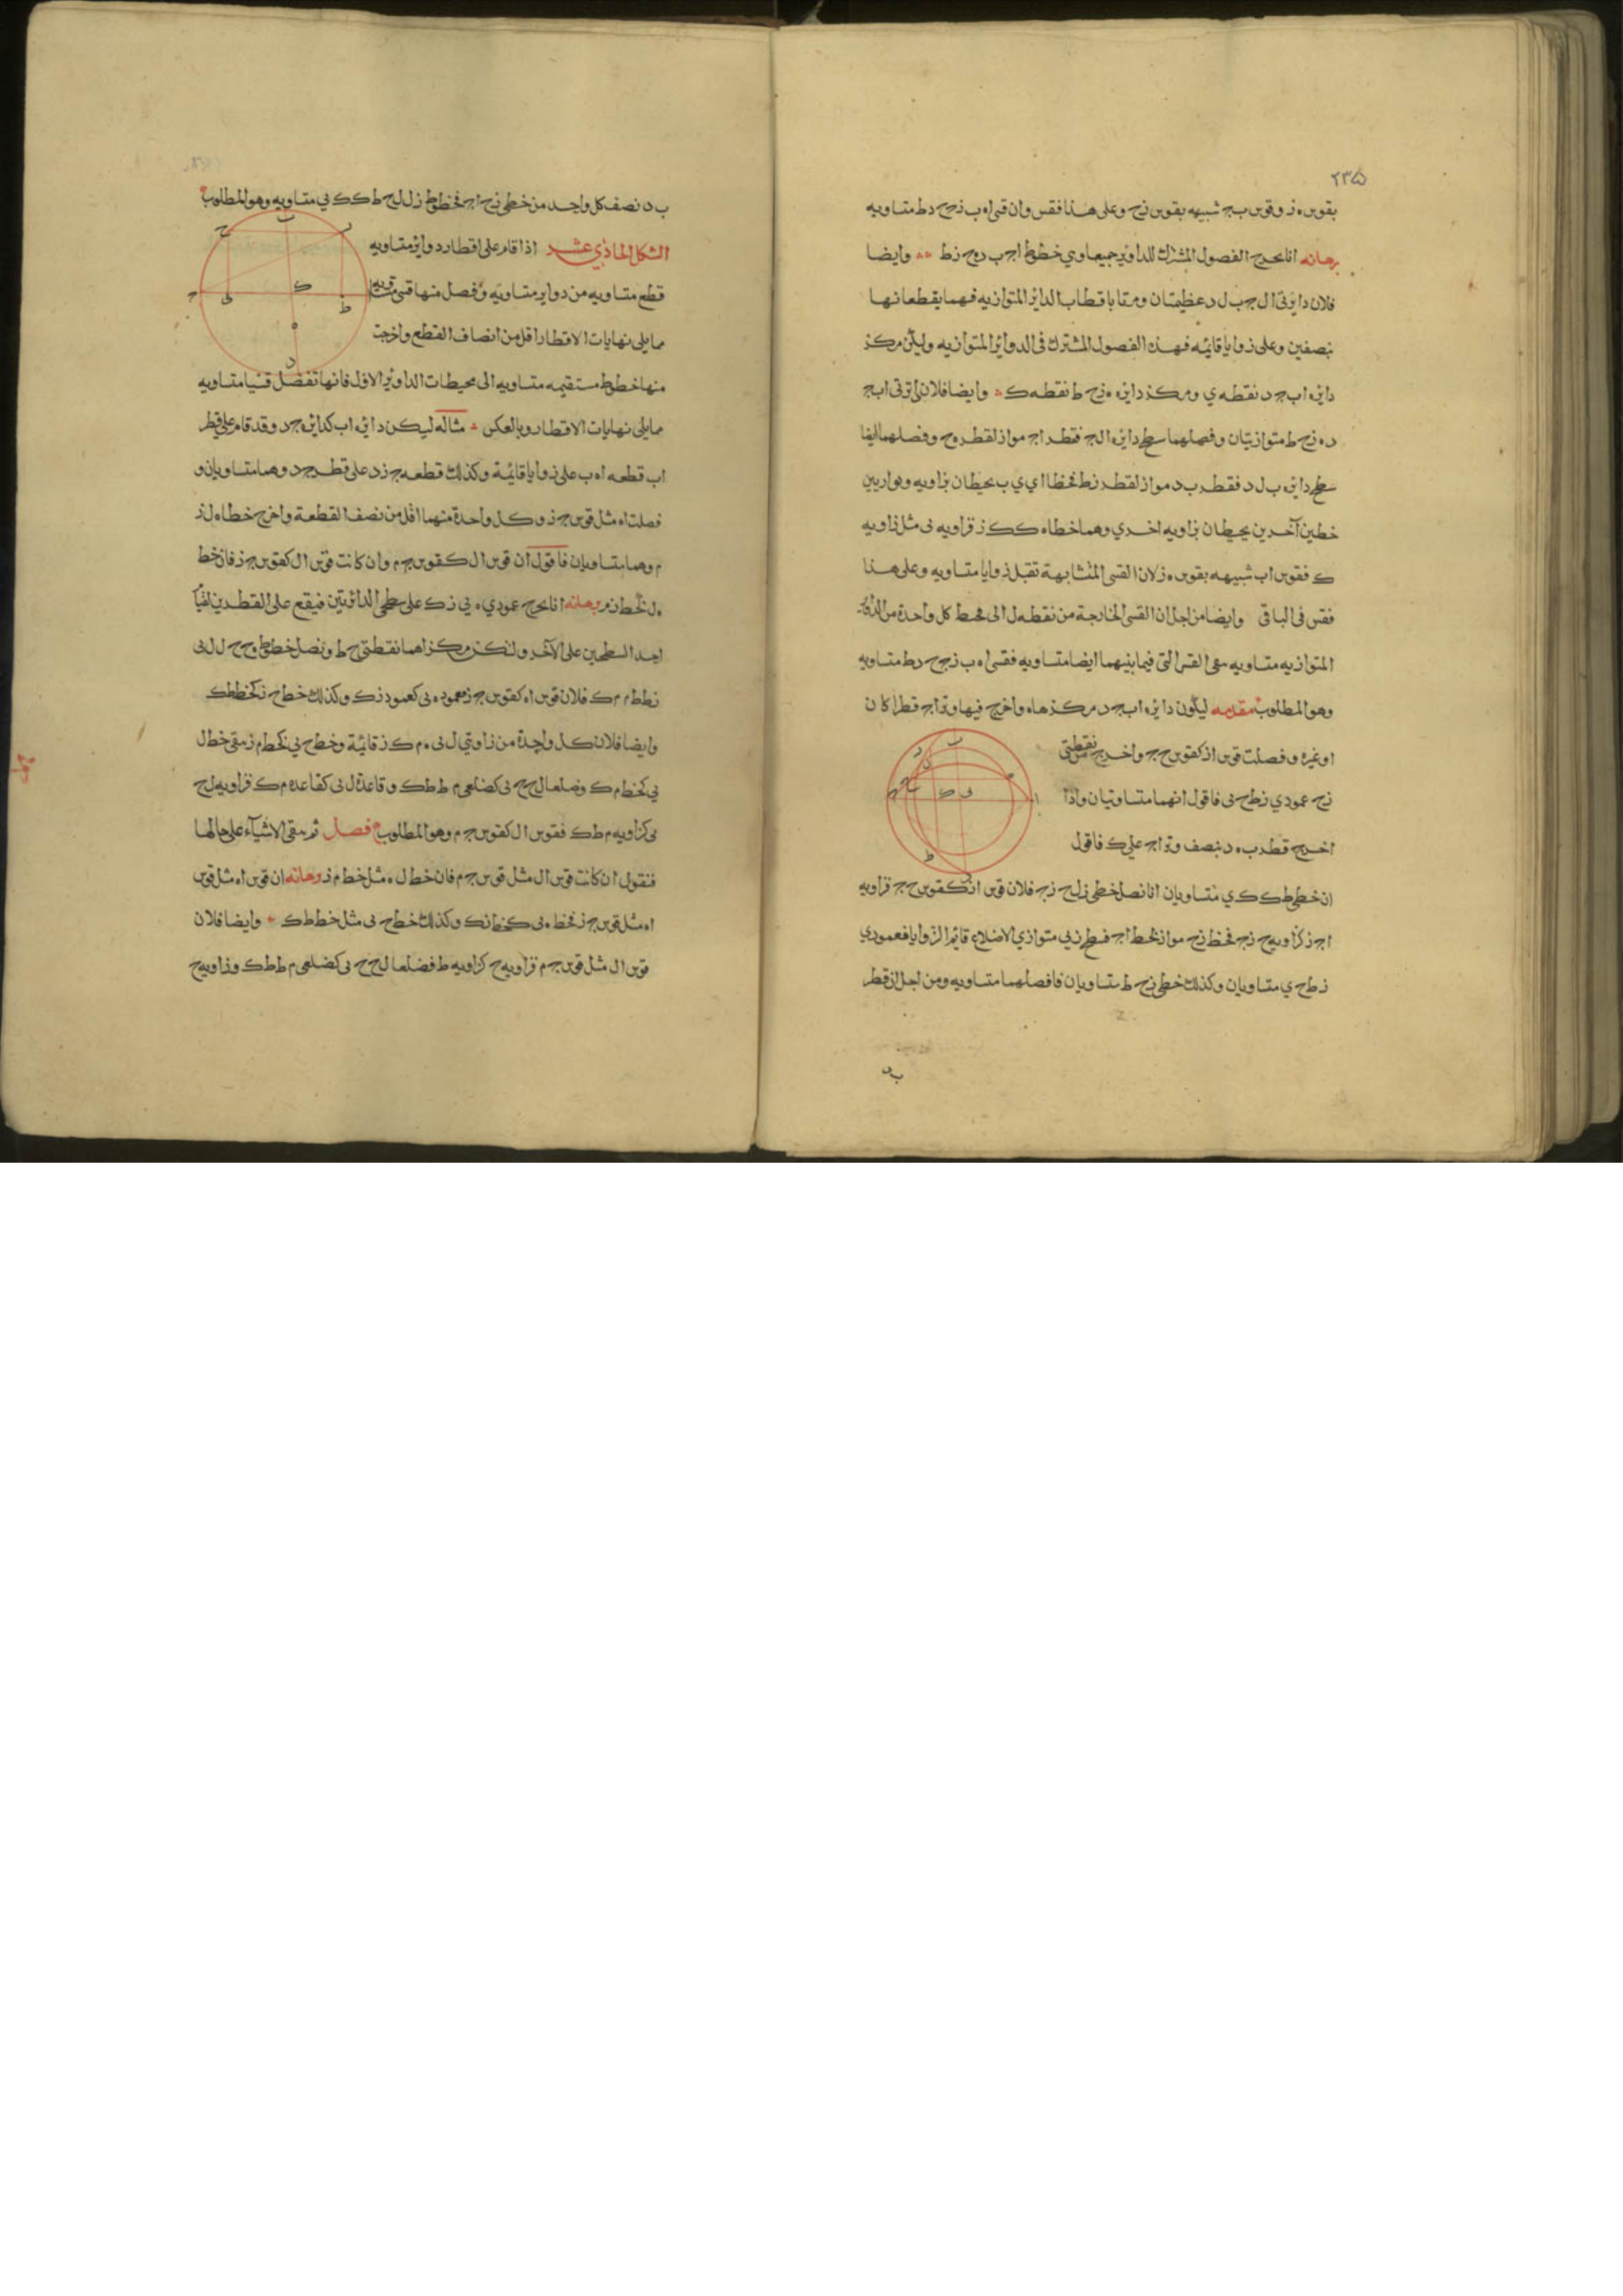 ٢٣٥
بقوس ه ز وقوس ب ج شبيهه بقوس زح وعلى هذا فقس وان قسي اه ب ز ج ح د ط متساويه
برهانه انا نخرج الفصول المشتركه للدواير جميعا وهي خطوط اج ب د ه ح ز ط وايضا
فلان دايرتي ال ج ب ل د عظيمتان ومرتا باقطاب الداير المتوازيه فهما يقطعانها
بنصفين وعلى زوايا قائمه فهذه الفصول المشتركه في الدوائر المتوازيه وليكن مركز
دايره اب ج د نقطه ي ومركز دايره ه زح ط نقطه ك وايضا فلان دايرتي اب ج
د ه زح ط متوازيتان وفصلهما سطح دايره ال ج فقطر اج مواز لقطر ه ح وفصلهما ايضا
سطح دايره ب ل د فقطر ب د مواز لقطر زط فخطا اي ي ب يحيطان بزاويه ويوازيين
خطين آخرين يحيطان بزاويه اخري وهما خطا ه ك ك ز فزاويه ي مثل زاويه
ك فقوس اب شبيهه بقوس ه ز لان القسي المتشابهة تقبل زوايا متساويه وعلى هذا
فقس في الباقي وايضا من اجل ان القسي الخارجة من نقطه ل الى محيط كل واحدة من الدواير
المتوازيه متساويه تبقى القسي التي فيما بينهما ايضا متساويه فقسي اه ب ز ج ح د ط متساويه
وهو المطلوب مقدمه ليكون دايره اب ج د مركزها ه واخرج فيها وتر اج قطرا كان
او غيره وفصلت قوس از كقوس ح ج واخرج من نقطتي
زح عمودي زط ح ي فاقول انهما متساويتان واذا
اخرج قطر ب ه د بنصف وتر اج على ك فاقول
ان خطي ط ك ك ي متساويان انا نصل خطي زح زج فلان قوس از كقوس ح ج فزاويه
اج ز كزاويه ح زج فخط زح مواز لخط اج فسطح زي متوازي الاضلاع قائم الزوايا فعمودي
زط ح ي متساويان وكذلك خطي زح ط متساويان فافصلهما متساويه ومن اجل ان قطر
ب د
ب د نصف كل واحد من خطي زح اج فخطوط زل ل ح ط ك ك ي متساويه وهو المطلوب
الشكل الحاذي عشر اذا قام على اقطار دواير متساويه
قطع متساويه من دواير متساويه وفصل منها قسي متساويه
مما يلي نهايات الاقطار اقل من انصاف القطع واخرجت
منها خطوط مستقيمه متساويه الى محيطات الدواير الاول فانها تفصل قسيا متساويه
مما يلي نهايات الاقطار وبالعكس مثاله ليكن دايره اب كدايره ج د وقد قام على قطر
اب قطعه اه ب على زوايا قائمة وكذلك قطعه ج زد على قطر ج د وهما متساويان و
فصلت اه مثل قوس ج ز وكل واحدة منهما اقل من نصف القطعة واخرج خطا ه ل ز
م وهما متساويان فاقول ان قوس ال كقوس ج م وان كانت قوس ال كقوس ج ز فان خط
ه ل كخط زم برهانه انا نخرج عمودي ه ي زك على سطحي الدائرتين فيقع على القطرين لقيام
احد السطحين على الآخر ولنكن مركزاهما نقطتي ح ط ونصل خطوط ه ح ح ل ل ي
زط ط م م ك فلان قوس اه كقوس ج ز فعمود ه ي كعمود زك وكذلك خط ح ي كخط ط ك
وايضا فلان كل واحدة من زاويتي ل ي ه م ك ز قائمة وخط ح ي كخط م ز بقي خط ل
ي كخط م ك وضلعا ل ح ح ي كضلعي م ط ط ك وقاعدة ل ي كقاعده م ك فزاويه ل ح
ي كزاويه م ط ك فقوس ال كقوس ج م وهو المطلوب فصل ثم نبقي الاشياء على حالها
فنقول ان كانت قوس ال مثل قوس ج م فان خط ل ه مثل خط م ز برهانه ان قوس اه مثل قوس
اه مثل قوس ج ز فخط ه ي كخط زك وكذلك خط ح ي مثل خط ط ك وايضا فلان
قوس ال مثل قوس ج م فزاويه ح كزاويه ط فضلعا ل ح ح ي كضلعي م ط ط ك وزاويه ح